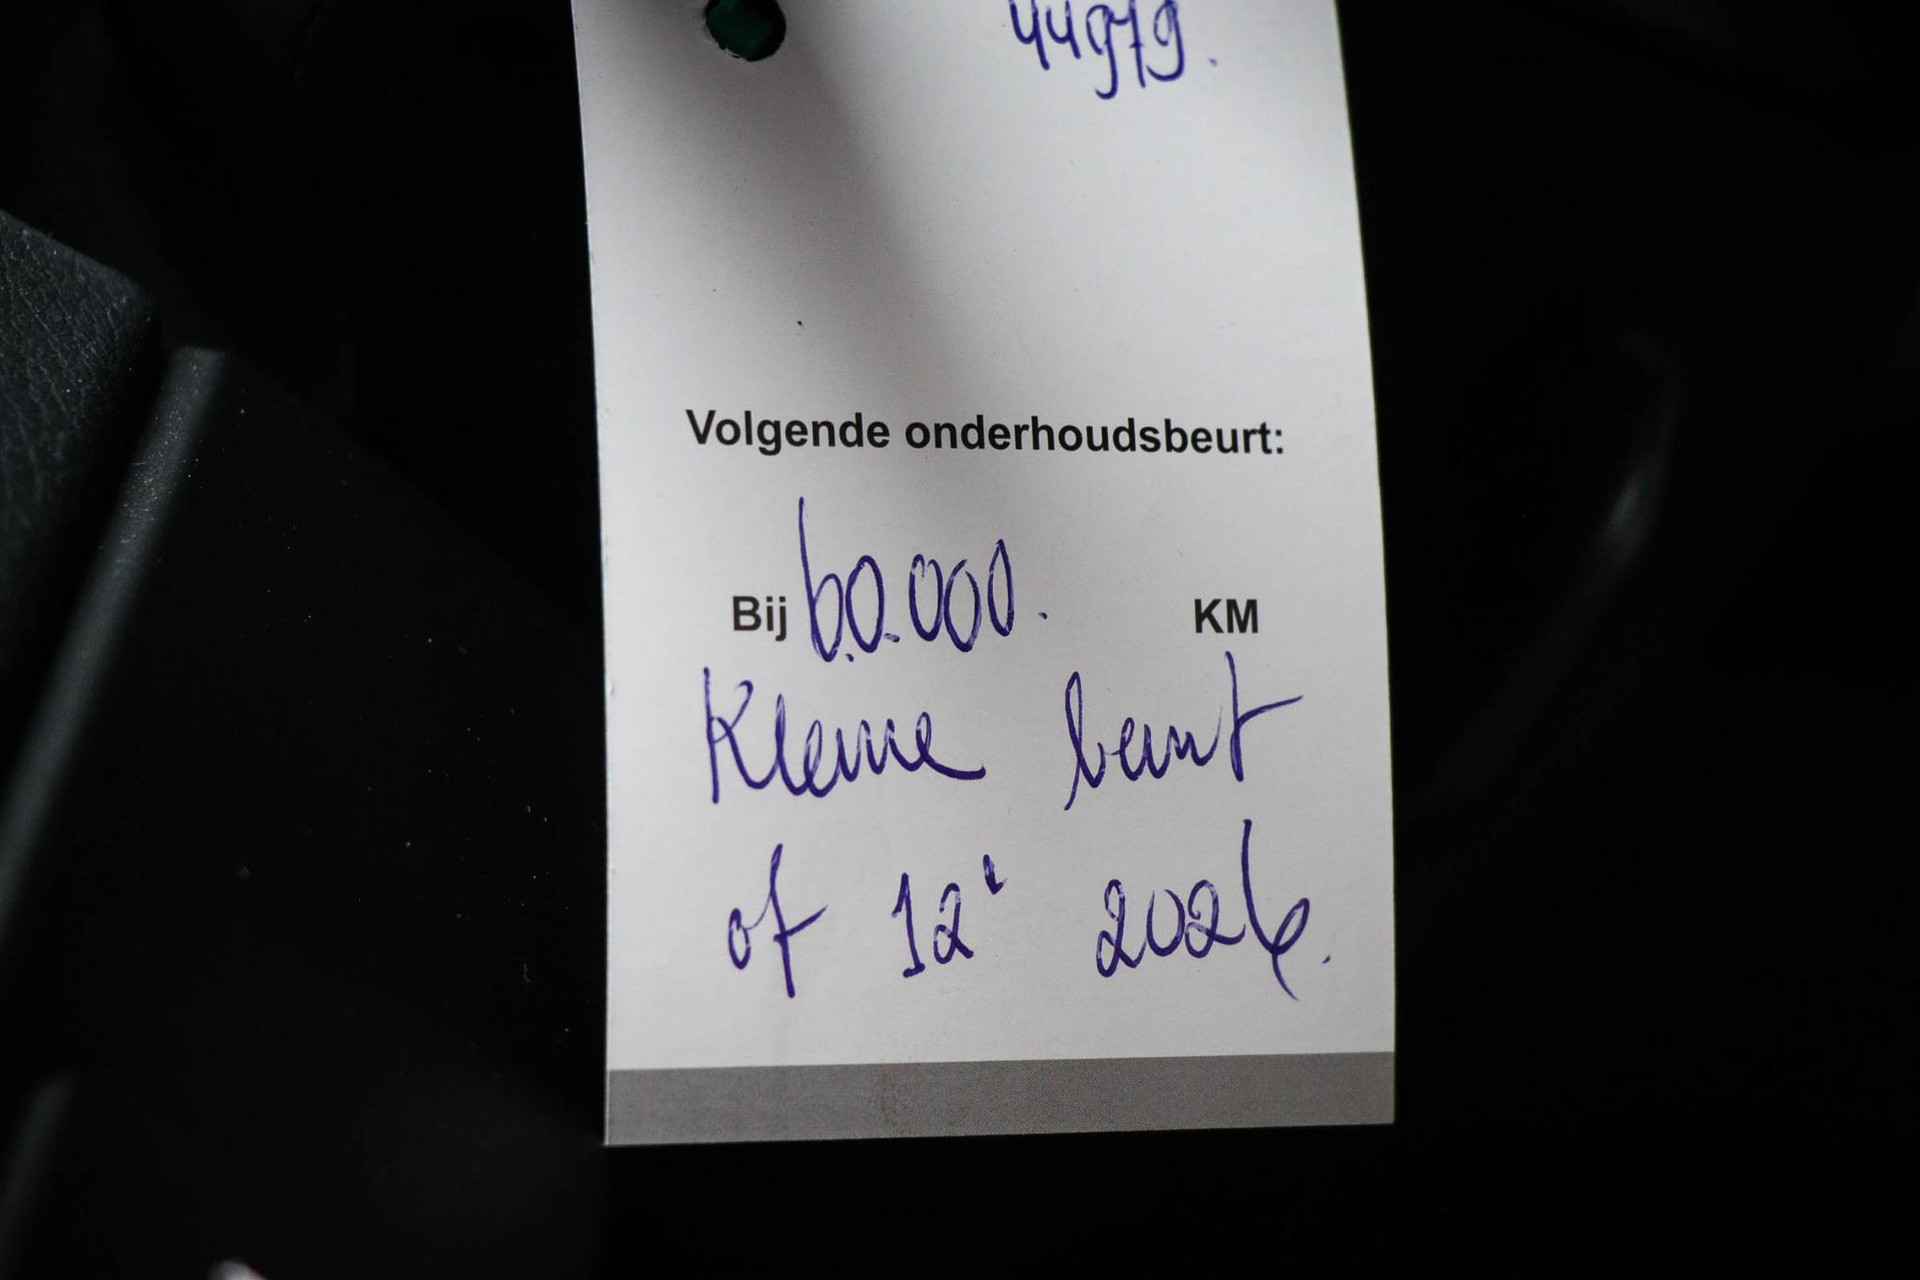 44979.
Volgende onderhoudsbeurt:
Bij 60.000. KM
Kleine beurt
of 12' 2026.